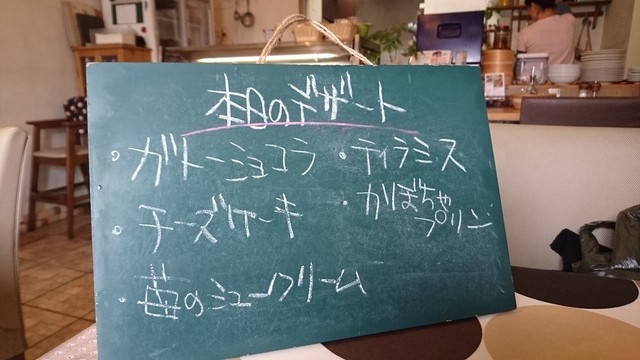 本日のデザート
・ガトーショコラ
・ティラミス
・チーズケーキ
・かぼちゃ
プリン
・歯のミュークリーム